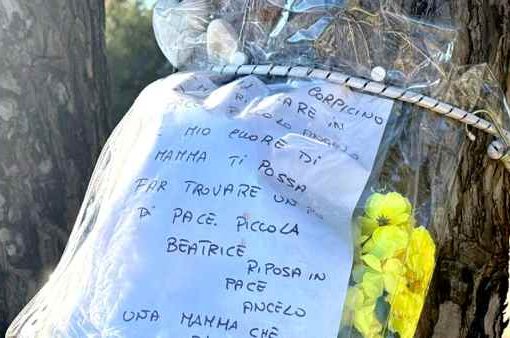 CORPICINO
ARE IN
PICCOLO
MIO CUORE DI
MAMMA TI POSSA
FAR TROVARE UN
DI PACE. PICCOLA
BEATRICE
RIPOSA IN
PACE
ANGELO
UNA MAMMA CHE